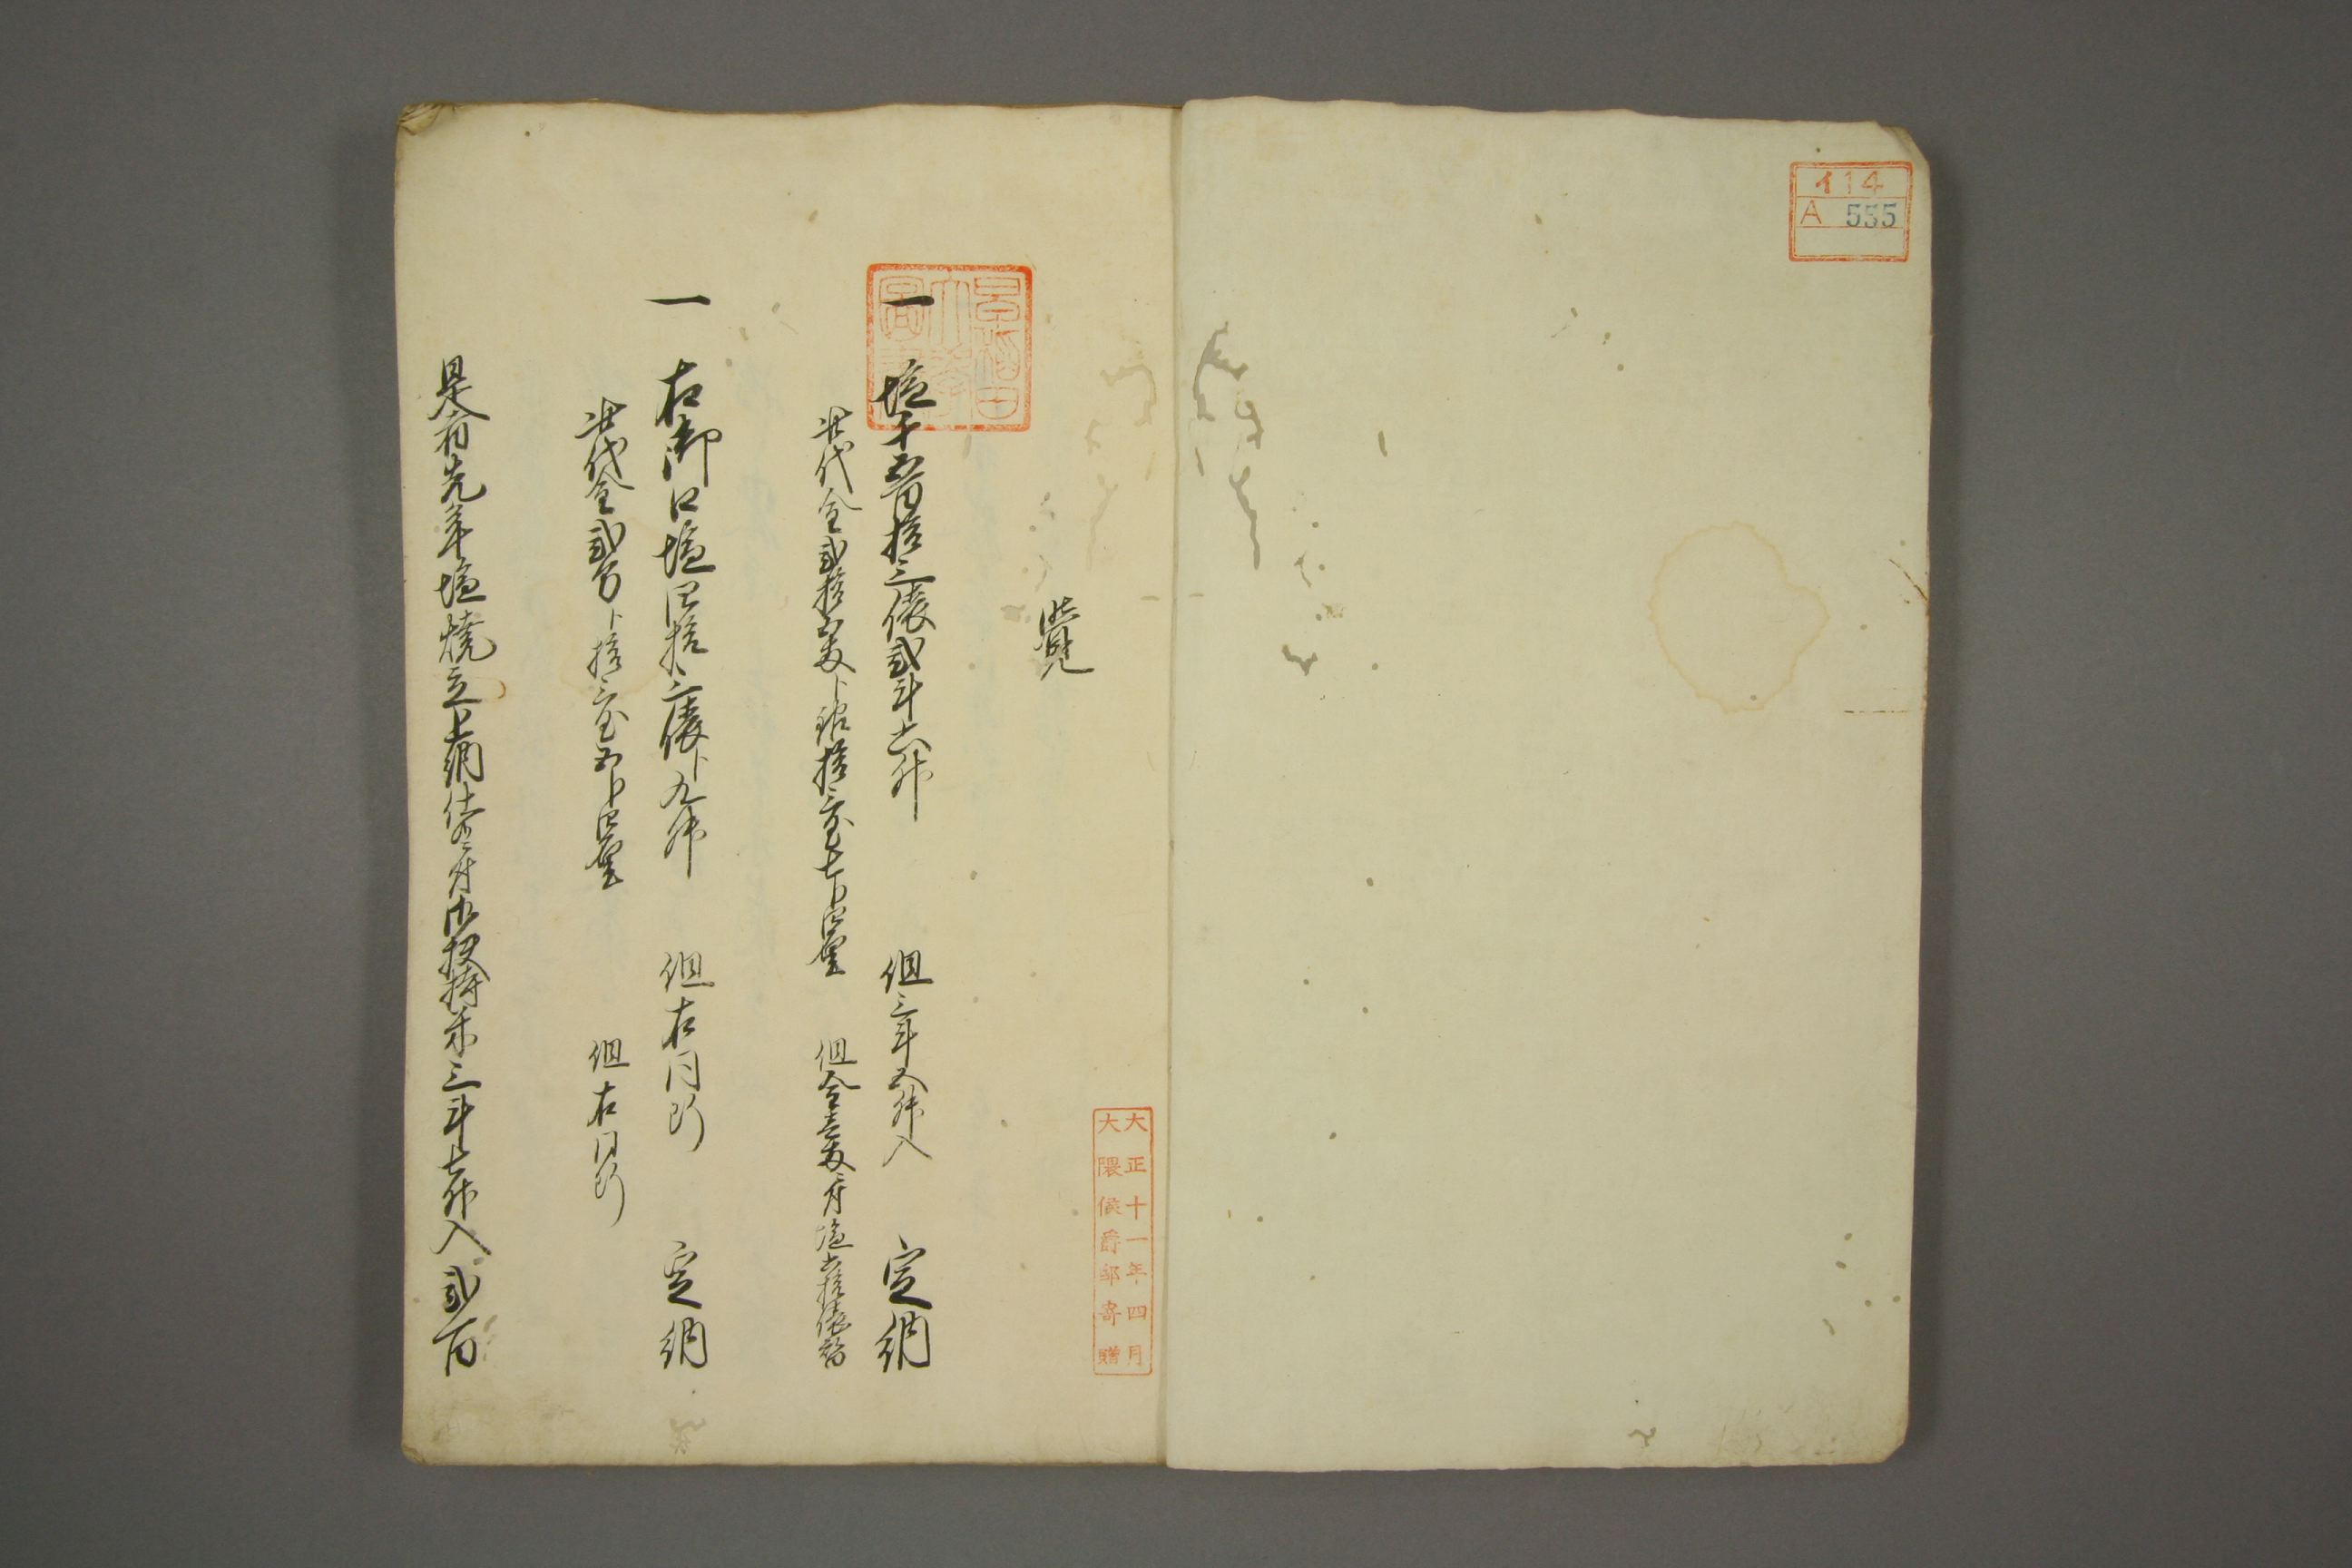 イ14
A 555
大正十一年四月
大隈侯爵邸寄贈
早稲田大學圖書
覺
一 塩千五百拾三俵弐斗六升 但三斗五升入 定納
此代金弐拾五両ト銀拾三匁七分四厘 但金壱両ニ付塩六拾俵替
一 右御口塩四拾三俵ト九升 但右同断 定納
此代金弐分ト拾三匁五分四厘 但右同断
是者先年塩焼立上納仕候ニ付御扶持米三斗七升入弐百